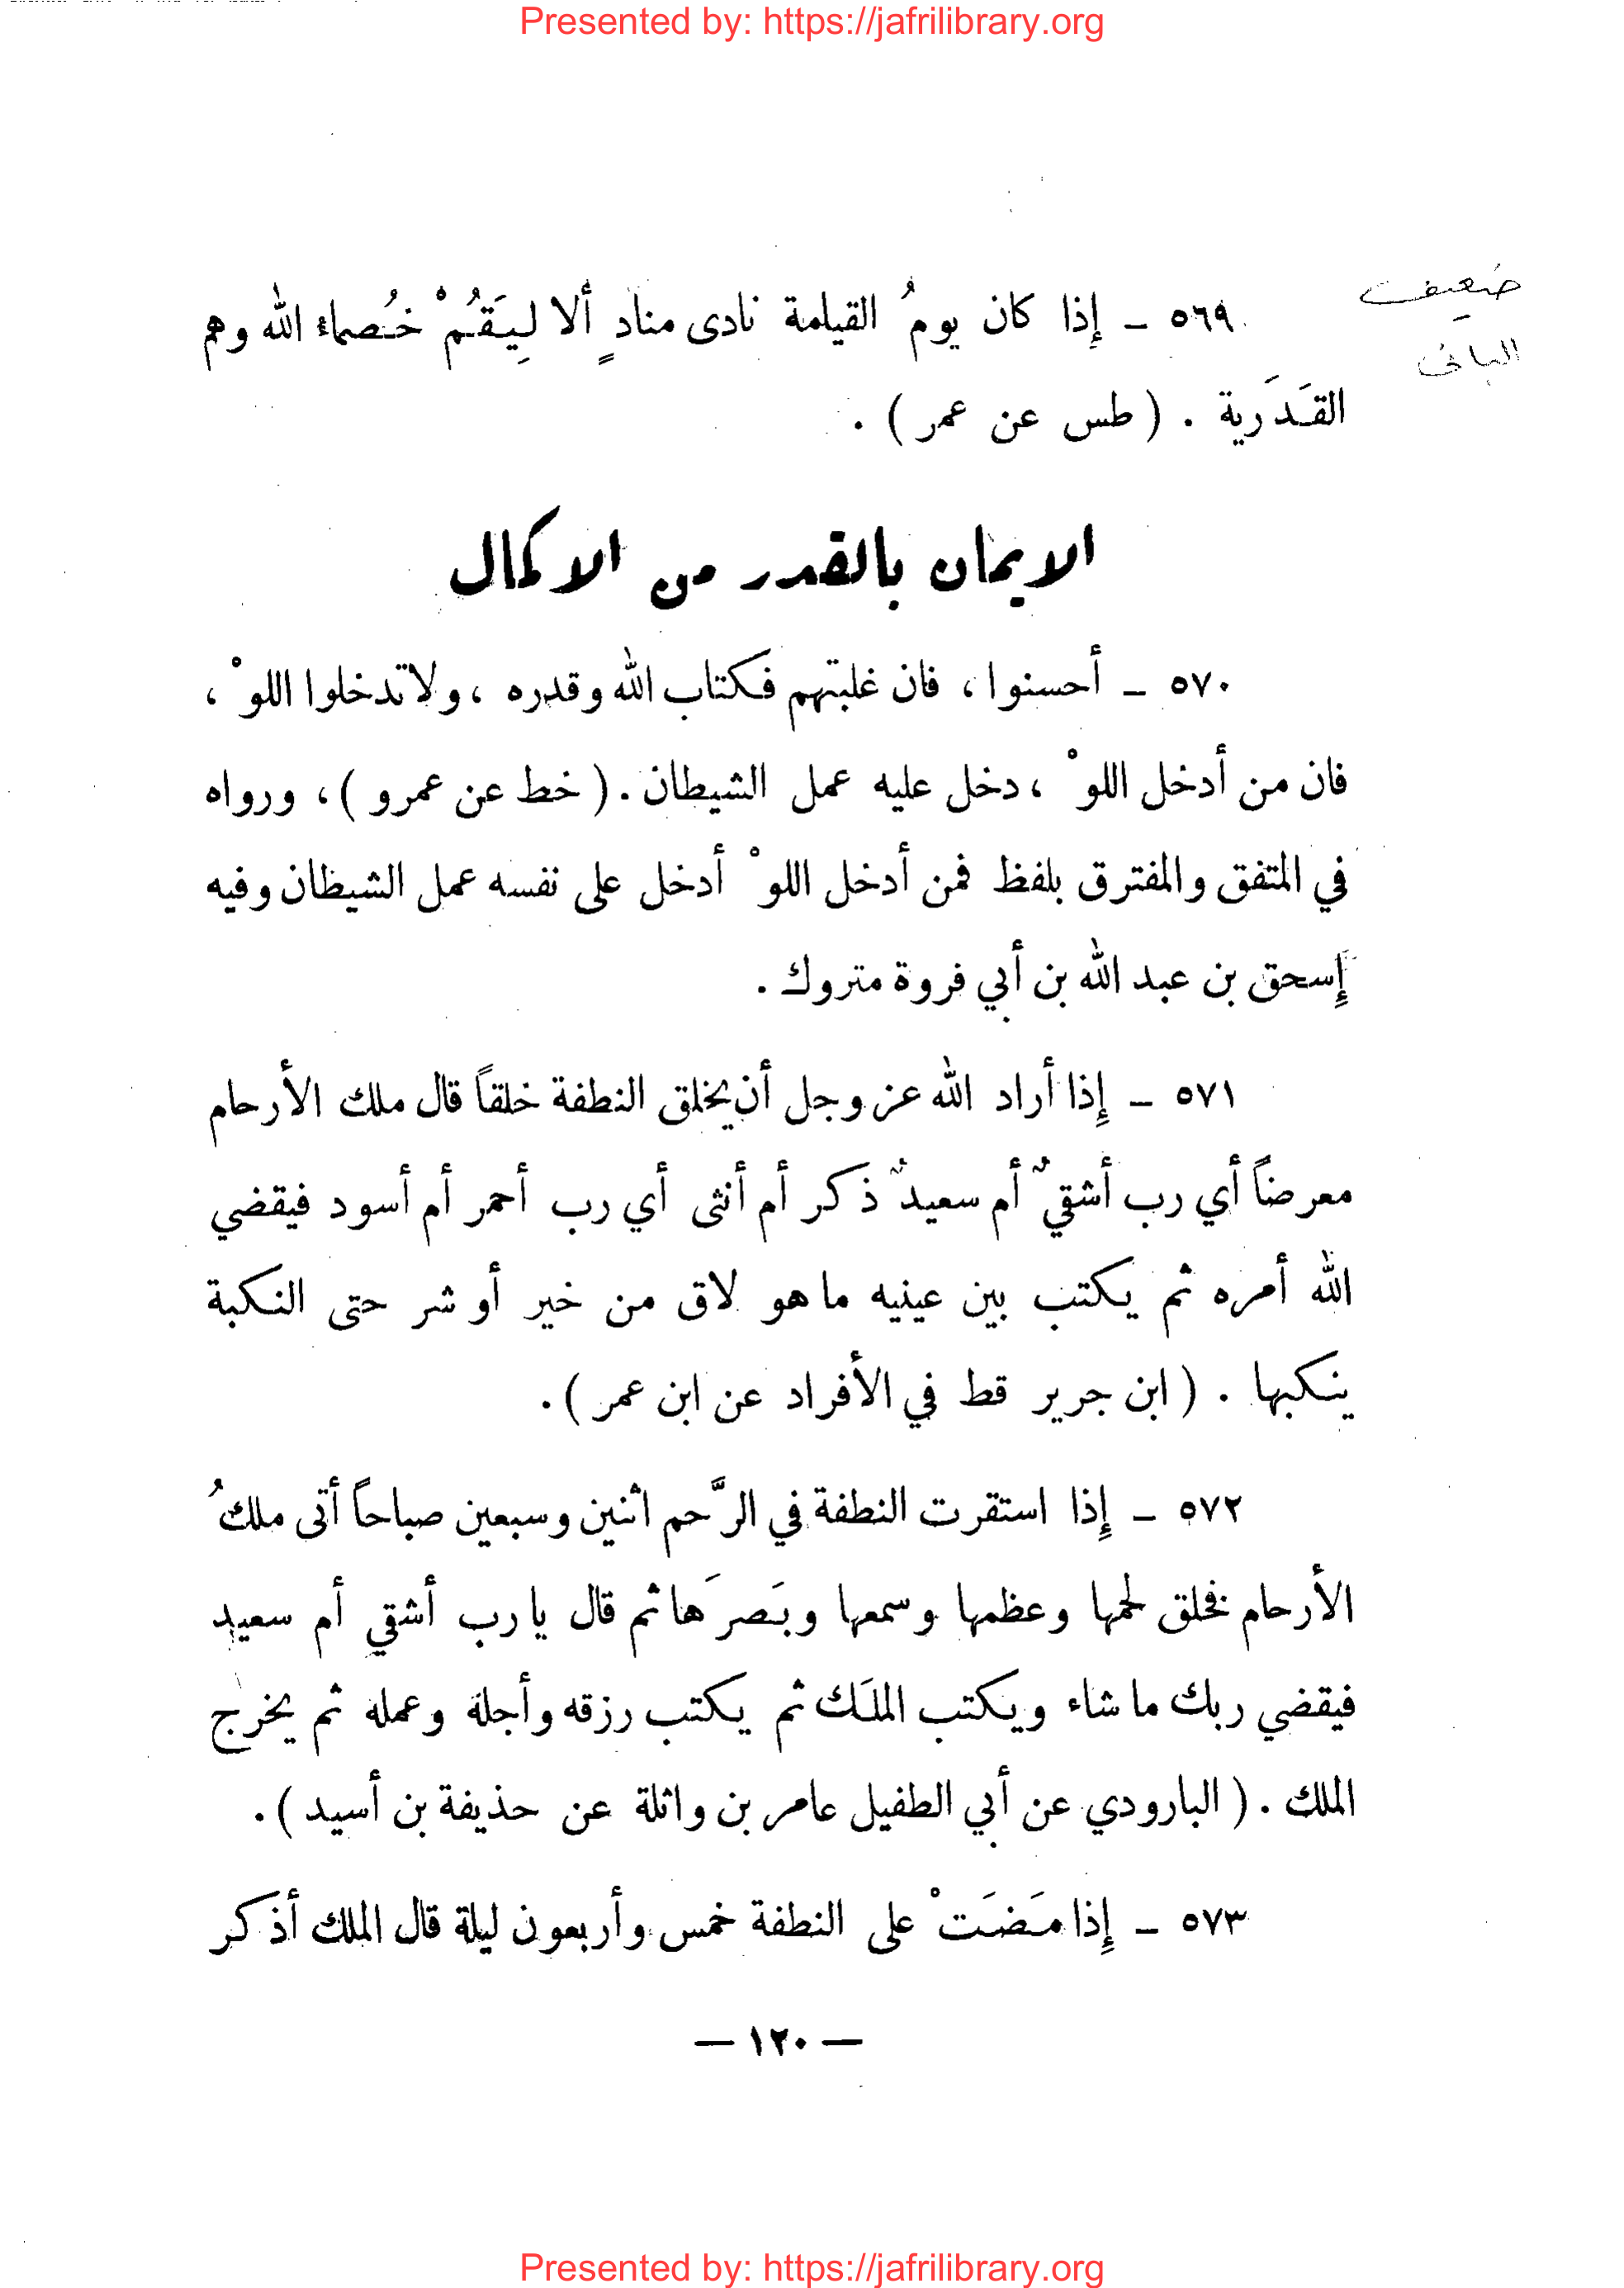 Presented by: https://jafrilibrary.org
ضعيف
٥٦٩ – إذا كان يومُ القيامة نادى منادٍ ألا لِيَقُمْ خُصماء الله وهم
القَدَرية . ( طس عن عمر ) .
الايمان بالقدر من الاكمال
٥٧٠ – أحسنوا ، فان غلبتهم فكتاب الله وقدره ، ولا تدخلوا اللوْ ،
فان من أدخل اللوْ ، دخل عليه عمل الشيطان . ( خط عن عمرو ) ، ورواه
في المتفق والمفترق بلفظ فمن أدخل اللوْ أدخل على نفسه عمل الشيطان وفيه
إسحق بن عبد الله بن أبي فروة متروك .
٥٧١ – إذا أراد الله عز وجل أن يخلق النطفة خلقاً قال ملك الأرحام
معرضاً أي رب أشقيٌ أم سعيدٌ ذكر أم أنثى أي رب أحمر أم أسود فيقضي
الله أمره ثم يكتب بين عينيه ما هو لاق من خير أو شر حتى النكبة
ينكبها . ( ابن جرير قط في الأفراد عن ابن عمر ) .
٥٧٢ – إذا استقرت النطفة في الرَّحم اثنين وسبعين صباحاً أتى ملكُ
الأرحام فخلق لحمها وعظمها وسمعها وبَصرَها ثم قال يا رب أشقي أم سعيد
فيقضي ربك ما شاء ويكتب الملَك ثم يكتب رزقه وأجلة وعمله ثم يخرج
الملك . ( البارودي عن أبي الطفيل عامر بن واثلة عن حذيفة بن أسيد ) .
٥٧٣ – إذا مَضَتْ على النطفة خمس وأربعون ليلة قال الملك أذكر
— ١٢٠ —
Presented by: https://jafrilibrary.org